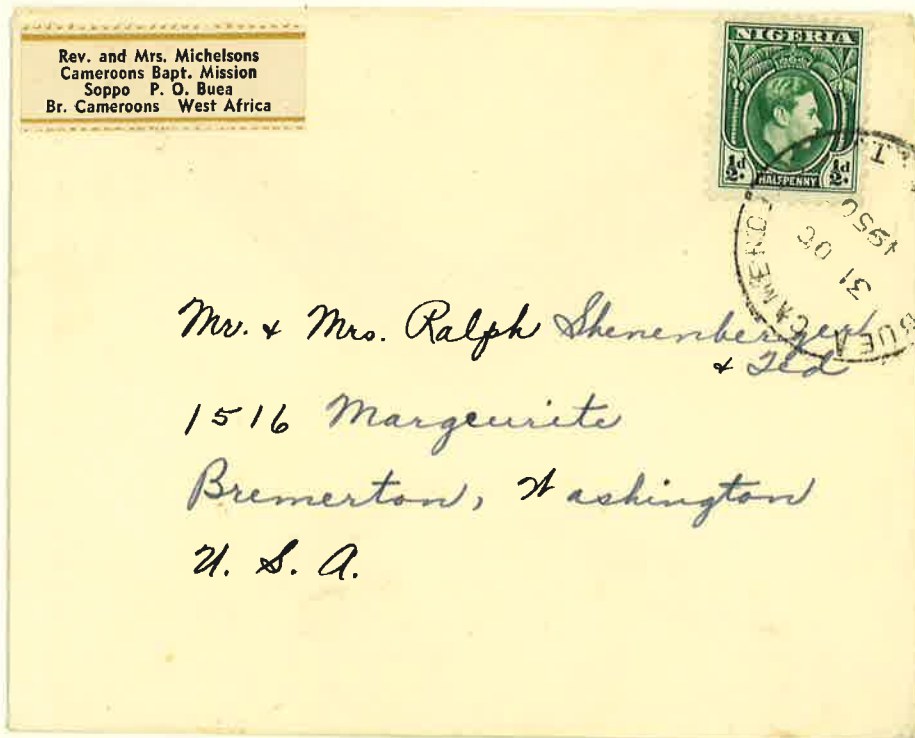 Rev. and Mrs. Michelsons
Cameroons Bapt. Mission
Soppo P. O. Buea
Br. Cameroons West Africa
NIGERIA
½d. HALFPENNY ½d.
31 OC
1950
BUEA CAMEROO
T
Mr. & Mrs. Ralph Shenenberger
& Ted
1516 Margeurite
Bremerton, Washington
U. S. A.